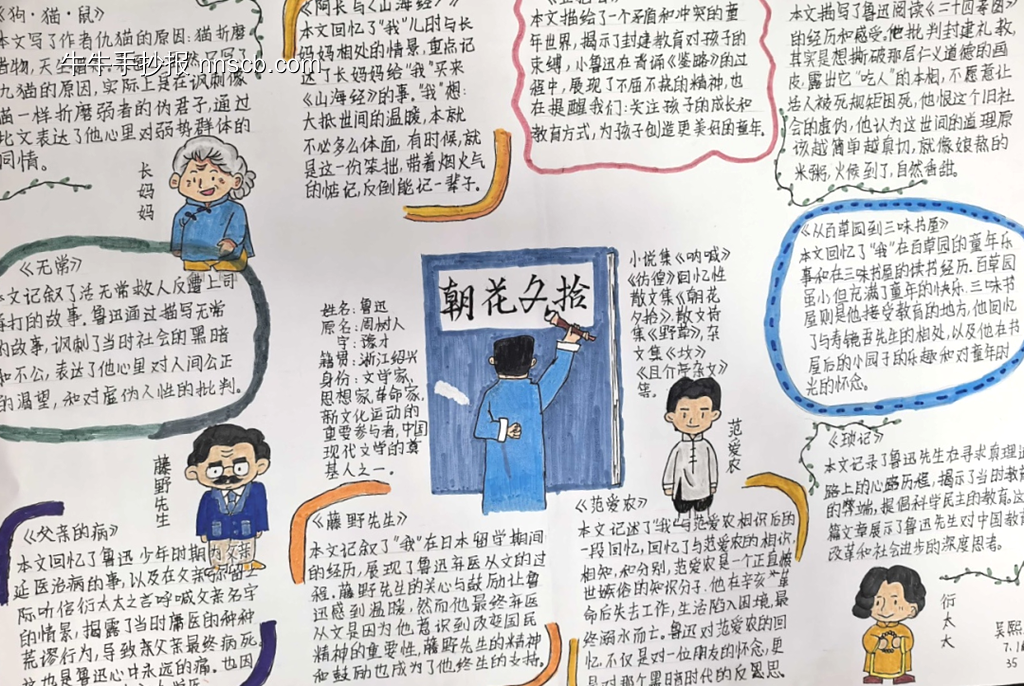 《狗·猫·鼠》
本文写了作者仇猫的原因：猫折磨
牛牛手抄报 nnscb.com
仇猫的原因，实际上是在讽刺像
猫一样折磨弱者的伪君子，通过
此文表达了他心里对弱势群体的
同情。
长妈妈
《阿长与《山海经》》
本文回忆了"我"儿时与长
妈妈相处的情景，重点记
述了长妈妈给"我"买来
《山海经》的事。"我"想：
大抵世间的温暖，本就
不必多么体面，有时候，就
是这一份笨拙，带着烟火气
的惦记，反倒能记一辈子。
本文描绘了一个矛盾和冲突的童
年世界，揭示了封建教育对孩子的
束缚，小鲁迅在背诵《鉴略》的过
程中，展现了不屈不挠的精神，也
在提醒我们：关注孩子的成长和
教育方式，为孩子创造更美好的童年。
本文描写了鲁迅阅读《二十四孝图》
的经历和感受。他批判封建礼教，
其实是想撕破那层仁义道德的画
皮，露出它"吃人"的本相，不愿意让
活人被死规矩困死，他恨这个旧社
会的虚伪，他认为这世间的道理原
该越简单越真切，就像娘熬的
米粥，火候到了，自然香甜。
《无常》
本文记叙了活无常救人反遭上司
毒打的故事。鲁迅通过描写无常
的故事，讽刺了当时社会的黑暗
和不公，表达了他心里对人间公正
的渴望，和对虚伪人性的批判。
姓名：鲁迅
原名：周树人
字：豫才
籍贯：浙江绍兴
身份：文学家、
思想家、革命家、
新文化运动的
重要参与者，中国
现代文学的奠
基人之一。
朝花夕拾
小说集《呐喊》
《彷徨》回忆性
散文集《朝花
夕拾》、散文诗
集《野草》、杂
文集《坟》
《且介亭杂文》
集。
范爱农
《从百草园到三味书屋》
本文回忆了"我"在百草园的童年乐
事和在三味书屋的读书经历。百草园
虽小但充满了童年的快乐。三味书
屋则是他接受教育的地方，他回忆
了与寿镜吾先生的相处，以及他在书
屋后的小园子的乐趣和对童年时
光的怀念。
藤野先生
《父亲的病》
本文回忆了鲁迅少年时期为父亲
延医治病的事，以及在父亲
际听信衍太太之言呼喊父亲名字
的情景，揭露了当时庸医的种种
荒谬行为，导致亲父亲最终病死。
这也是鲁迅心中永远的痛。也因
《藤野先生》
本文记叙了"我"在日本留学期间
的经历，展现了鲁迅弃医从文的过
程。藤野先生的关心与鼓励让鲁
迅感到温暖，然而他最终弃医
从文是因为他意识到改变国民
精神的重要性，藤野先生的精神
和鼓励也成为了他终生的支持。
《范爱农》
本文记述了"我"与范爱农相识后的
一段回忆，回忆了与范爱农的相识，
相知，和分别，范爱农是一个正直被
世嫉俗的知识分子，他在辛亥革
命后失去工作，生活陷入困境，最
终溺水而亡。鲁迅对范爱农的回
忆，不仅是对一位朋友的怀念，更
是对那个黑暗时代的反思思
《琐记》
本文记录了鲁迅先生在寻求真理道
路上的心路历程，揭示了当时教育
的弊端，提倡科学民主的教育，这
篇文章展示了鲁迅先生对中国教育
改革和社会进步的深度思考。
衍太太
吴熙
35